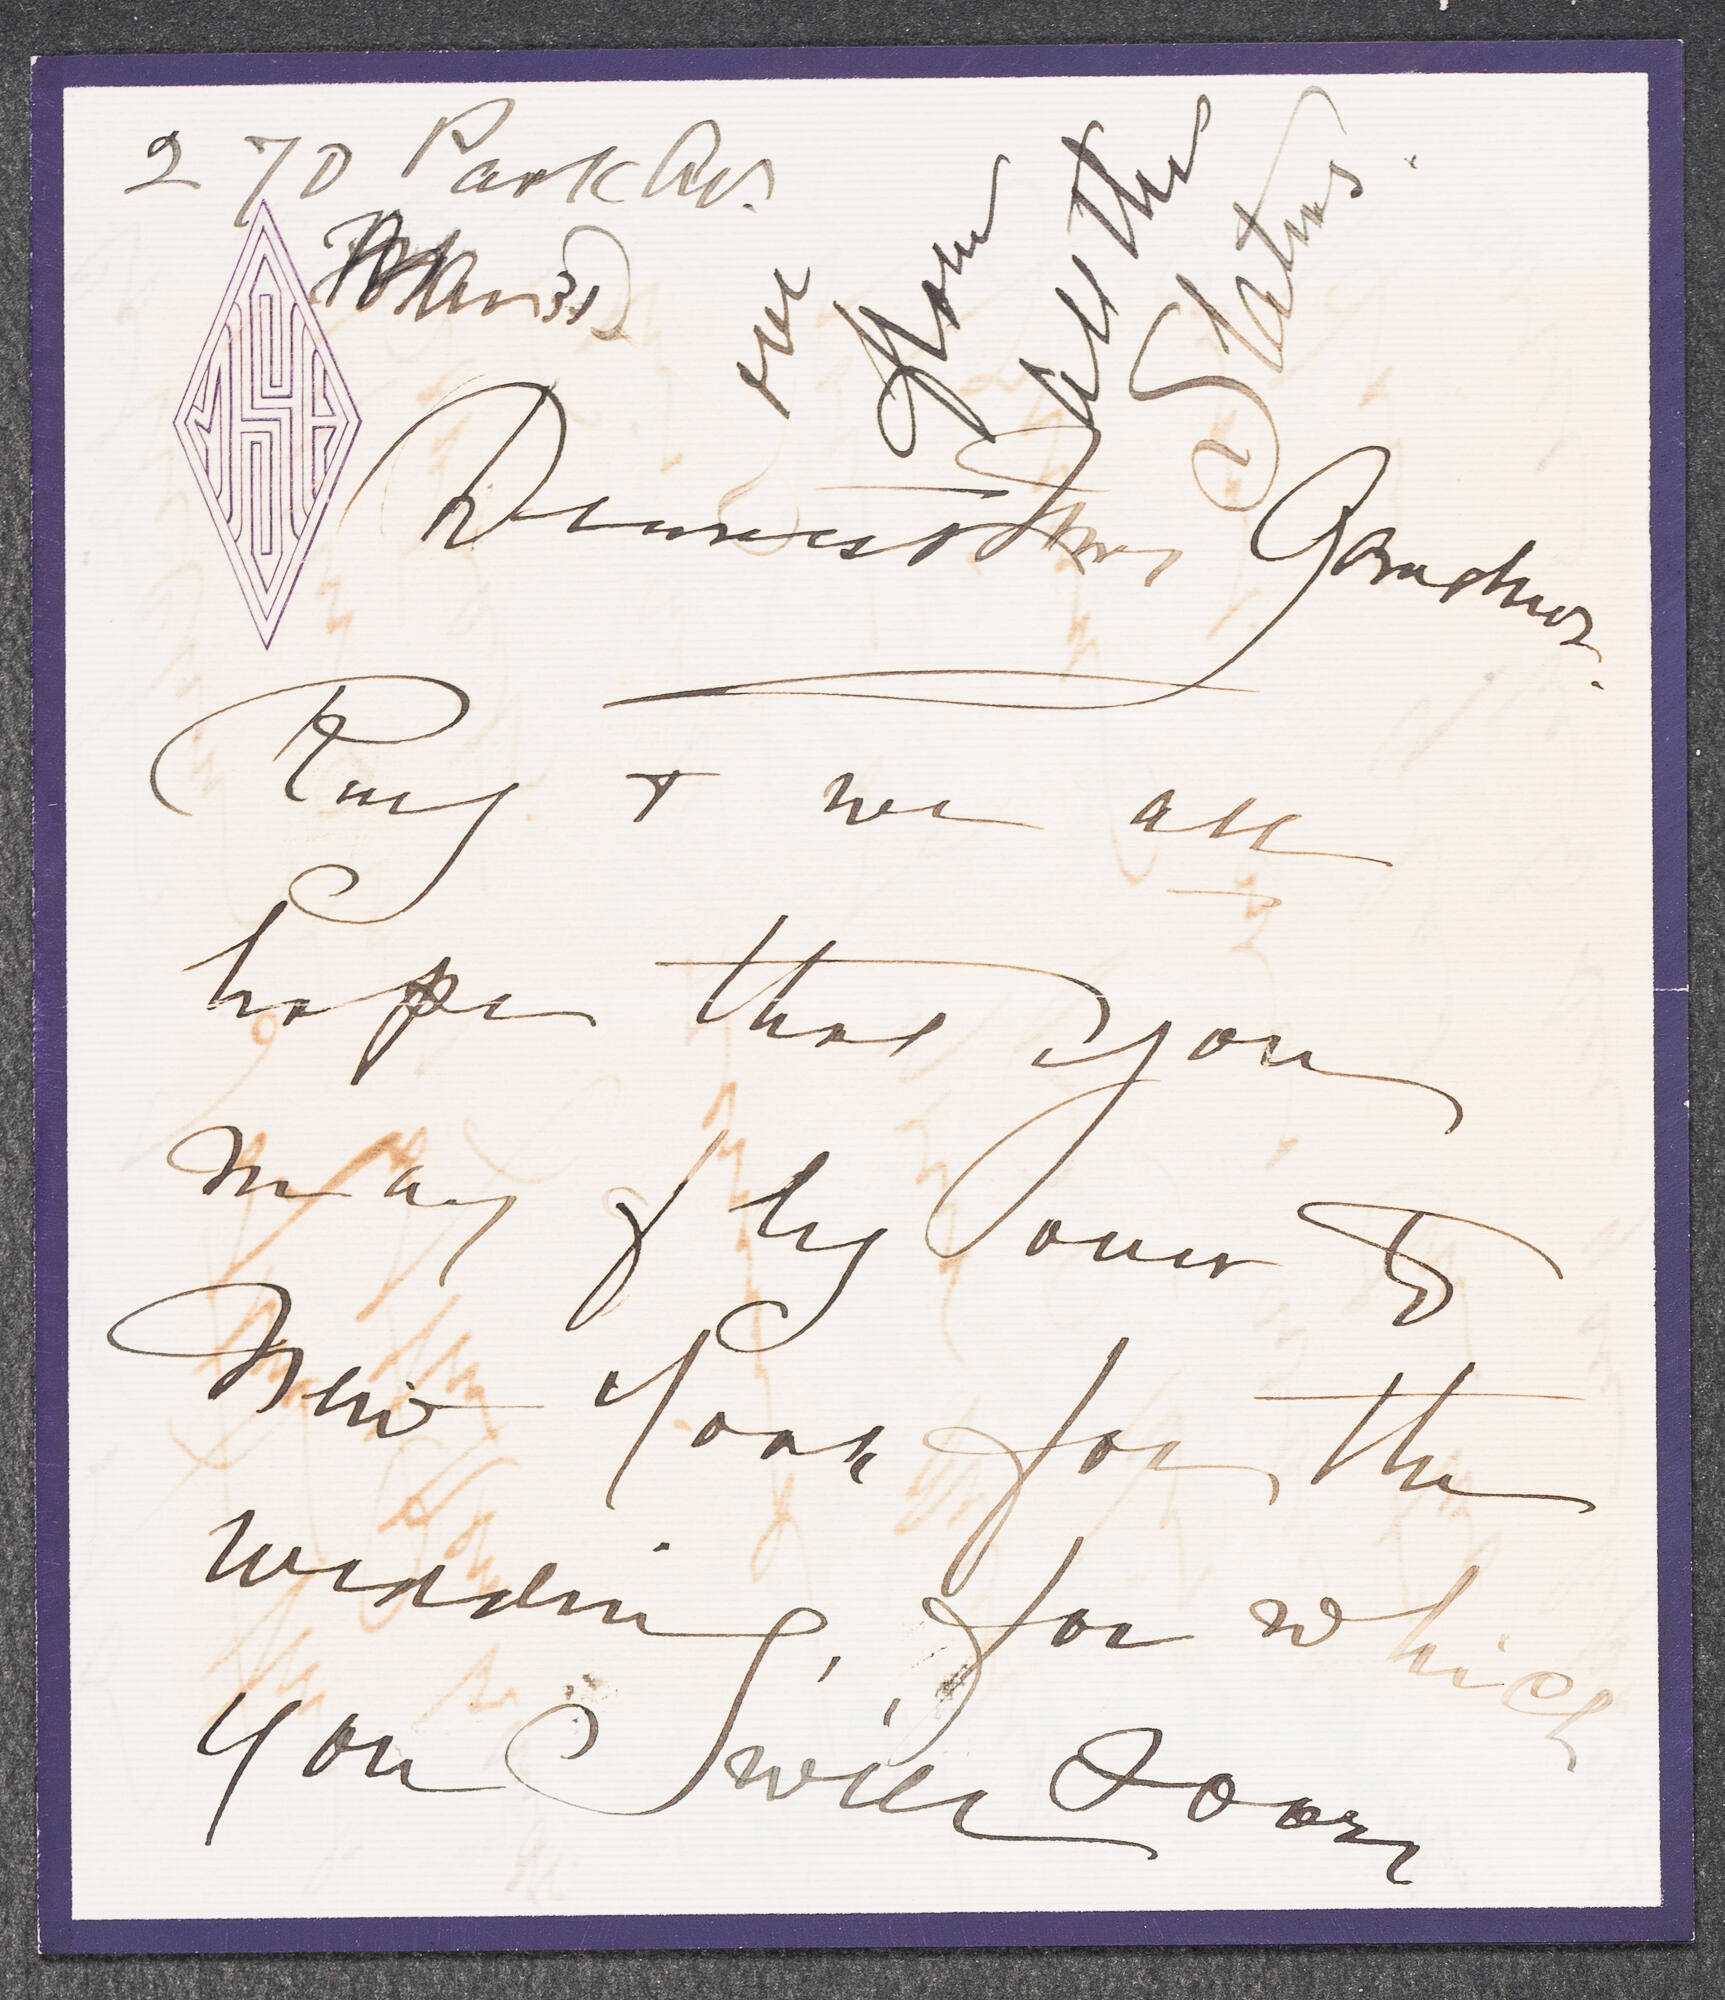 270 Park Av.
31
Dearest Mrs Gardner.
Ruy & we all
hope that you
may fly over to
New York for the
wedding, for which
you will soon
from
all the
States.